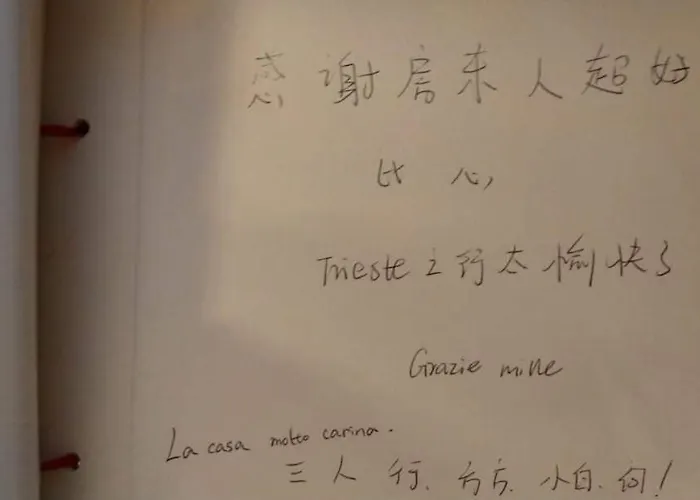 感谢房东人超好
比心
Trieste之行太愉快了
Grazie mille
La casa molto carina.
三人行、方方、小白、向！